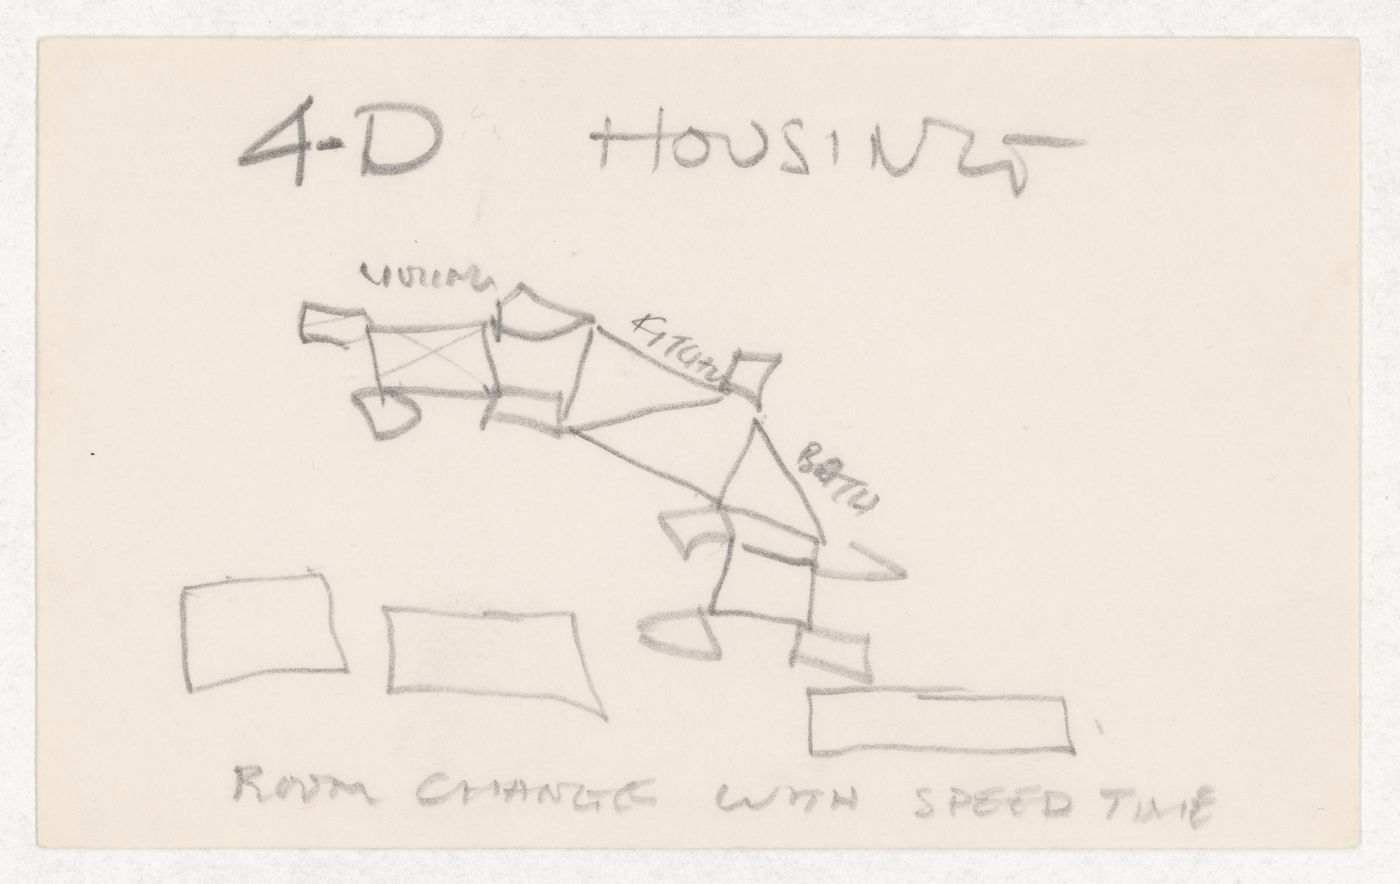 4-D HOUSING
LIVING
KITCHEN
BATH
ROOM CHANGE WITH SPEED TIME